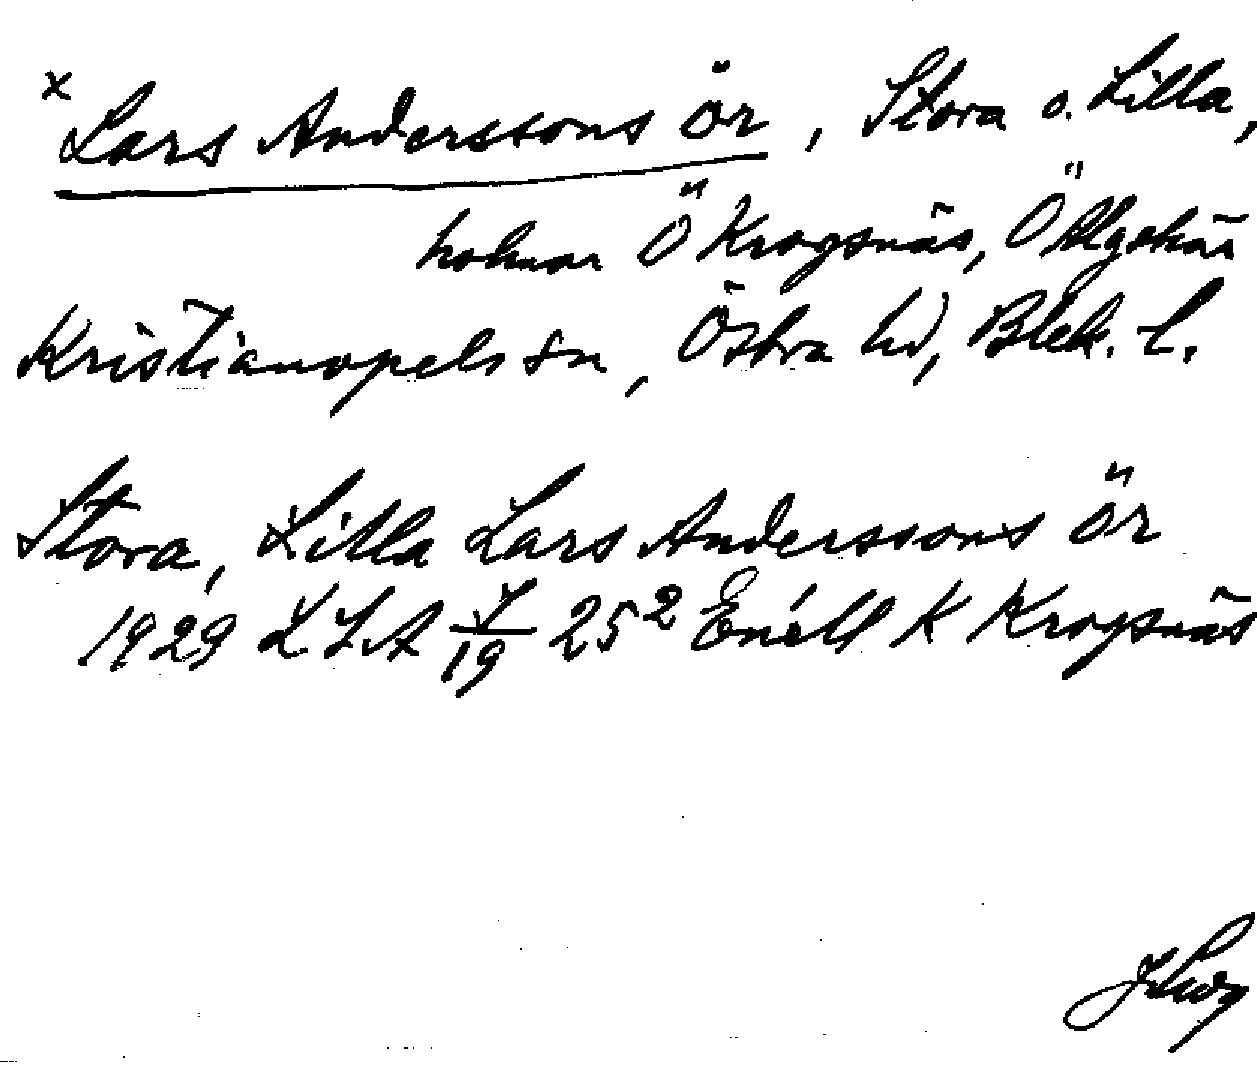 x Lars Anderssons ör, Stora o. Lilla,
holmar Ö Krogsnäs, Ö Algskär
Kristianopels sn, Östra hd, Blek. l.
Stora, Lilla Lars Anderssons ör
1929 LSA 25² Enéll K Krogsnäs